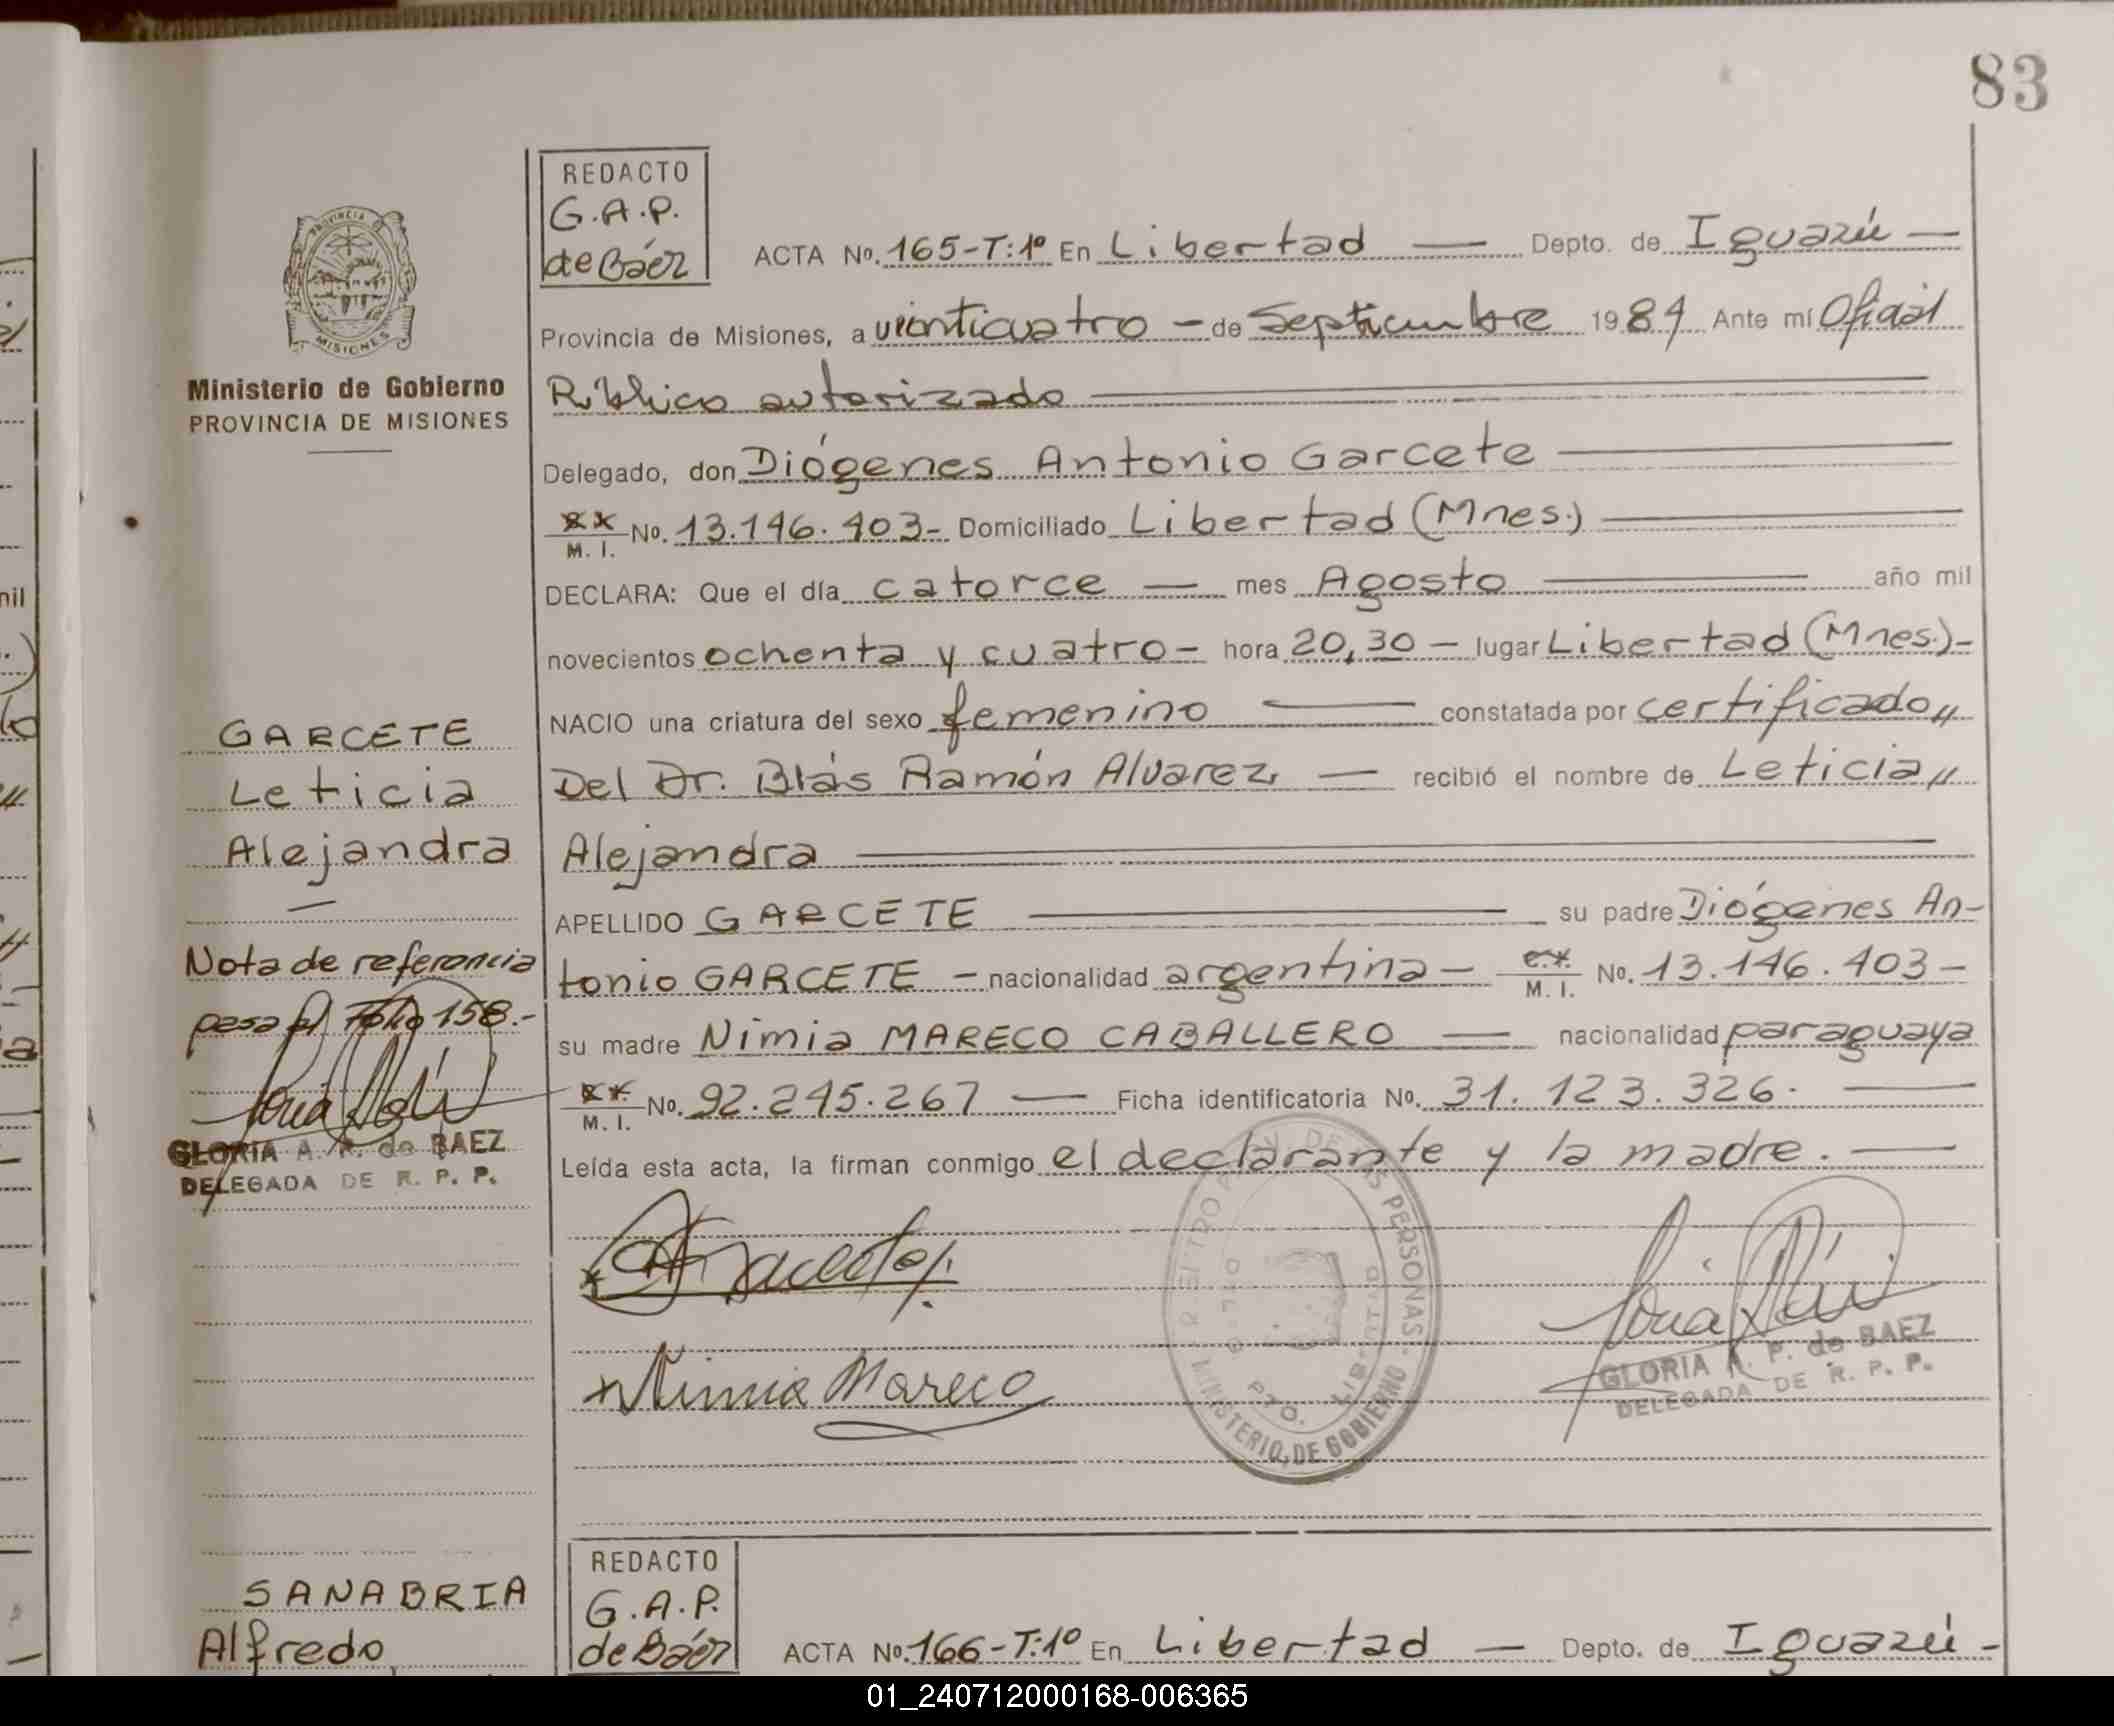 83
PROVINCIA
MISIONES
Ministerio de Gobierno
PROVINCIA DE MISIONES
REDACTO
G.A.P.
de Báez
ACTA No. 165-T:1º En Libertad — Depto. de Iguazú —
Provincia de Misiones, a veinticuatro — de Septiembre 1984 Ante mí Oficial
Público autorizado
Delegado, don Diógenes Antonio Garcete
M. I. No. 13.146.403- Domiciliado Libertad (Mnes.)
DECLARA: Que el día catorce — mes Agosto — año mil
novecientos ochenta y cuatro- hora 20,30 — lugar Libertad (Mnes.)-
NACIO una criatura del sexo femenino — constatada por certificado,,
Del Dr. Blás Ramón Alvarez, — recibió el nombre de Leticia,,
Alejandra
APELLIDO GARCETE — su padre Diógenes An-
tonio GARCETE — nacionalidad argentina — M. I. No. 13.146.403-
su madre Nimia MARECO CABALLERO — nacionalidad paraguaya
M. I. No. 92.245.267 — Ficha identificatoria No. 31.123.326. —
Leída esta acta, la firman conmigo el declarante y la madre. —
GARCETE
Leticia
Alejandra
—
Nota de referencia
pasa al Folio 158.-
GLORIA A. P. de BAEZ
DELEGADA DE R. P. P.
Nimia Mareco
DE LAS PERSONAS
MINISTERIO DE GOBIERNO
GLORIA A. P. de BAEZ
DELEGADA DE R. P. P.
SANABRIA
Alfredo
REDACTO
G.A.P.
de Báez
ACTA No. 166-T:1º En Libertad — Depto. de Iguazú -
01_240712000168-006365